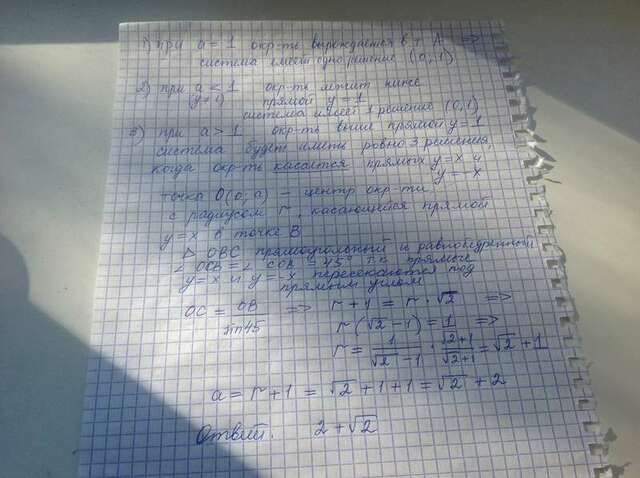 1) при a = 1 окр-ть вырождается в т. А =>
система имеет одно решение (0,1)
2) при a < 1 окр-ть лежит ниже
(y≠1) прямой y = 1
система имеет 1 решение (0,1)
3) при a > 1 окр-ть выше прямой y = 1
система будет иметь ровно 3 решения,
когда окр-ть касается прямых y = x и
y = -x
точка O(0, a) - центр окр-ти
с радиусом r, касающейся прямой
y = x в точке B
△ OBC прямоугольный и равнобедренный
∠ OCB = ∠ COB = 45° т.к. прямые
y = x и y = -x пересекаются под
прямым углом
OC = OB / sin45 => r + 1 = r · √2 =>
r(√2 - 1) = 1 =>
r = 1/(√2 - 1) · (√2+1)/(√2+1) = √2 + 1
a = r + 1 = √2 + 1 + 1 = √2 + 2
Ответ. 2 + √2